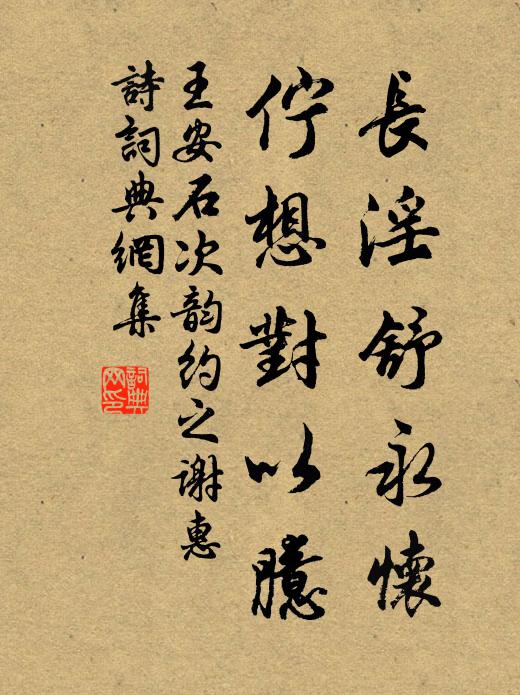 長淫舒永懷
佇想對以臆
王安石次韵約之謝惠
詩詞典網集
詞典
网印